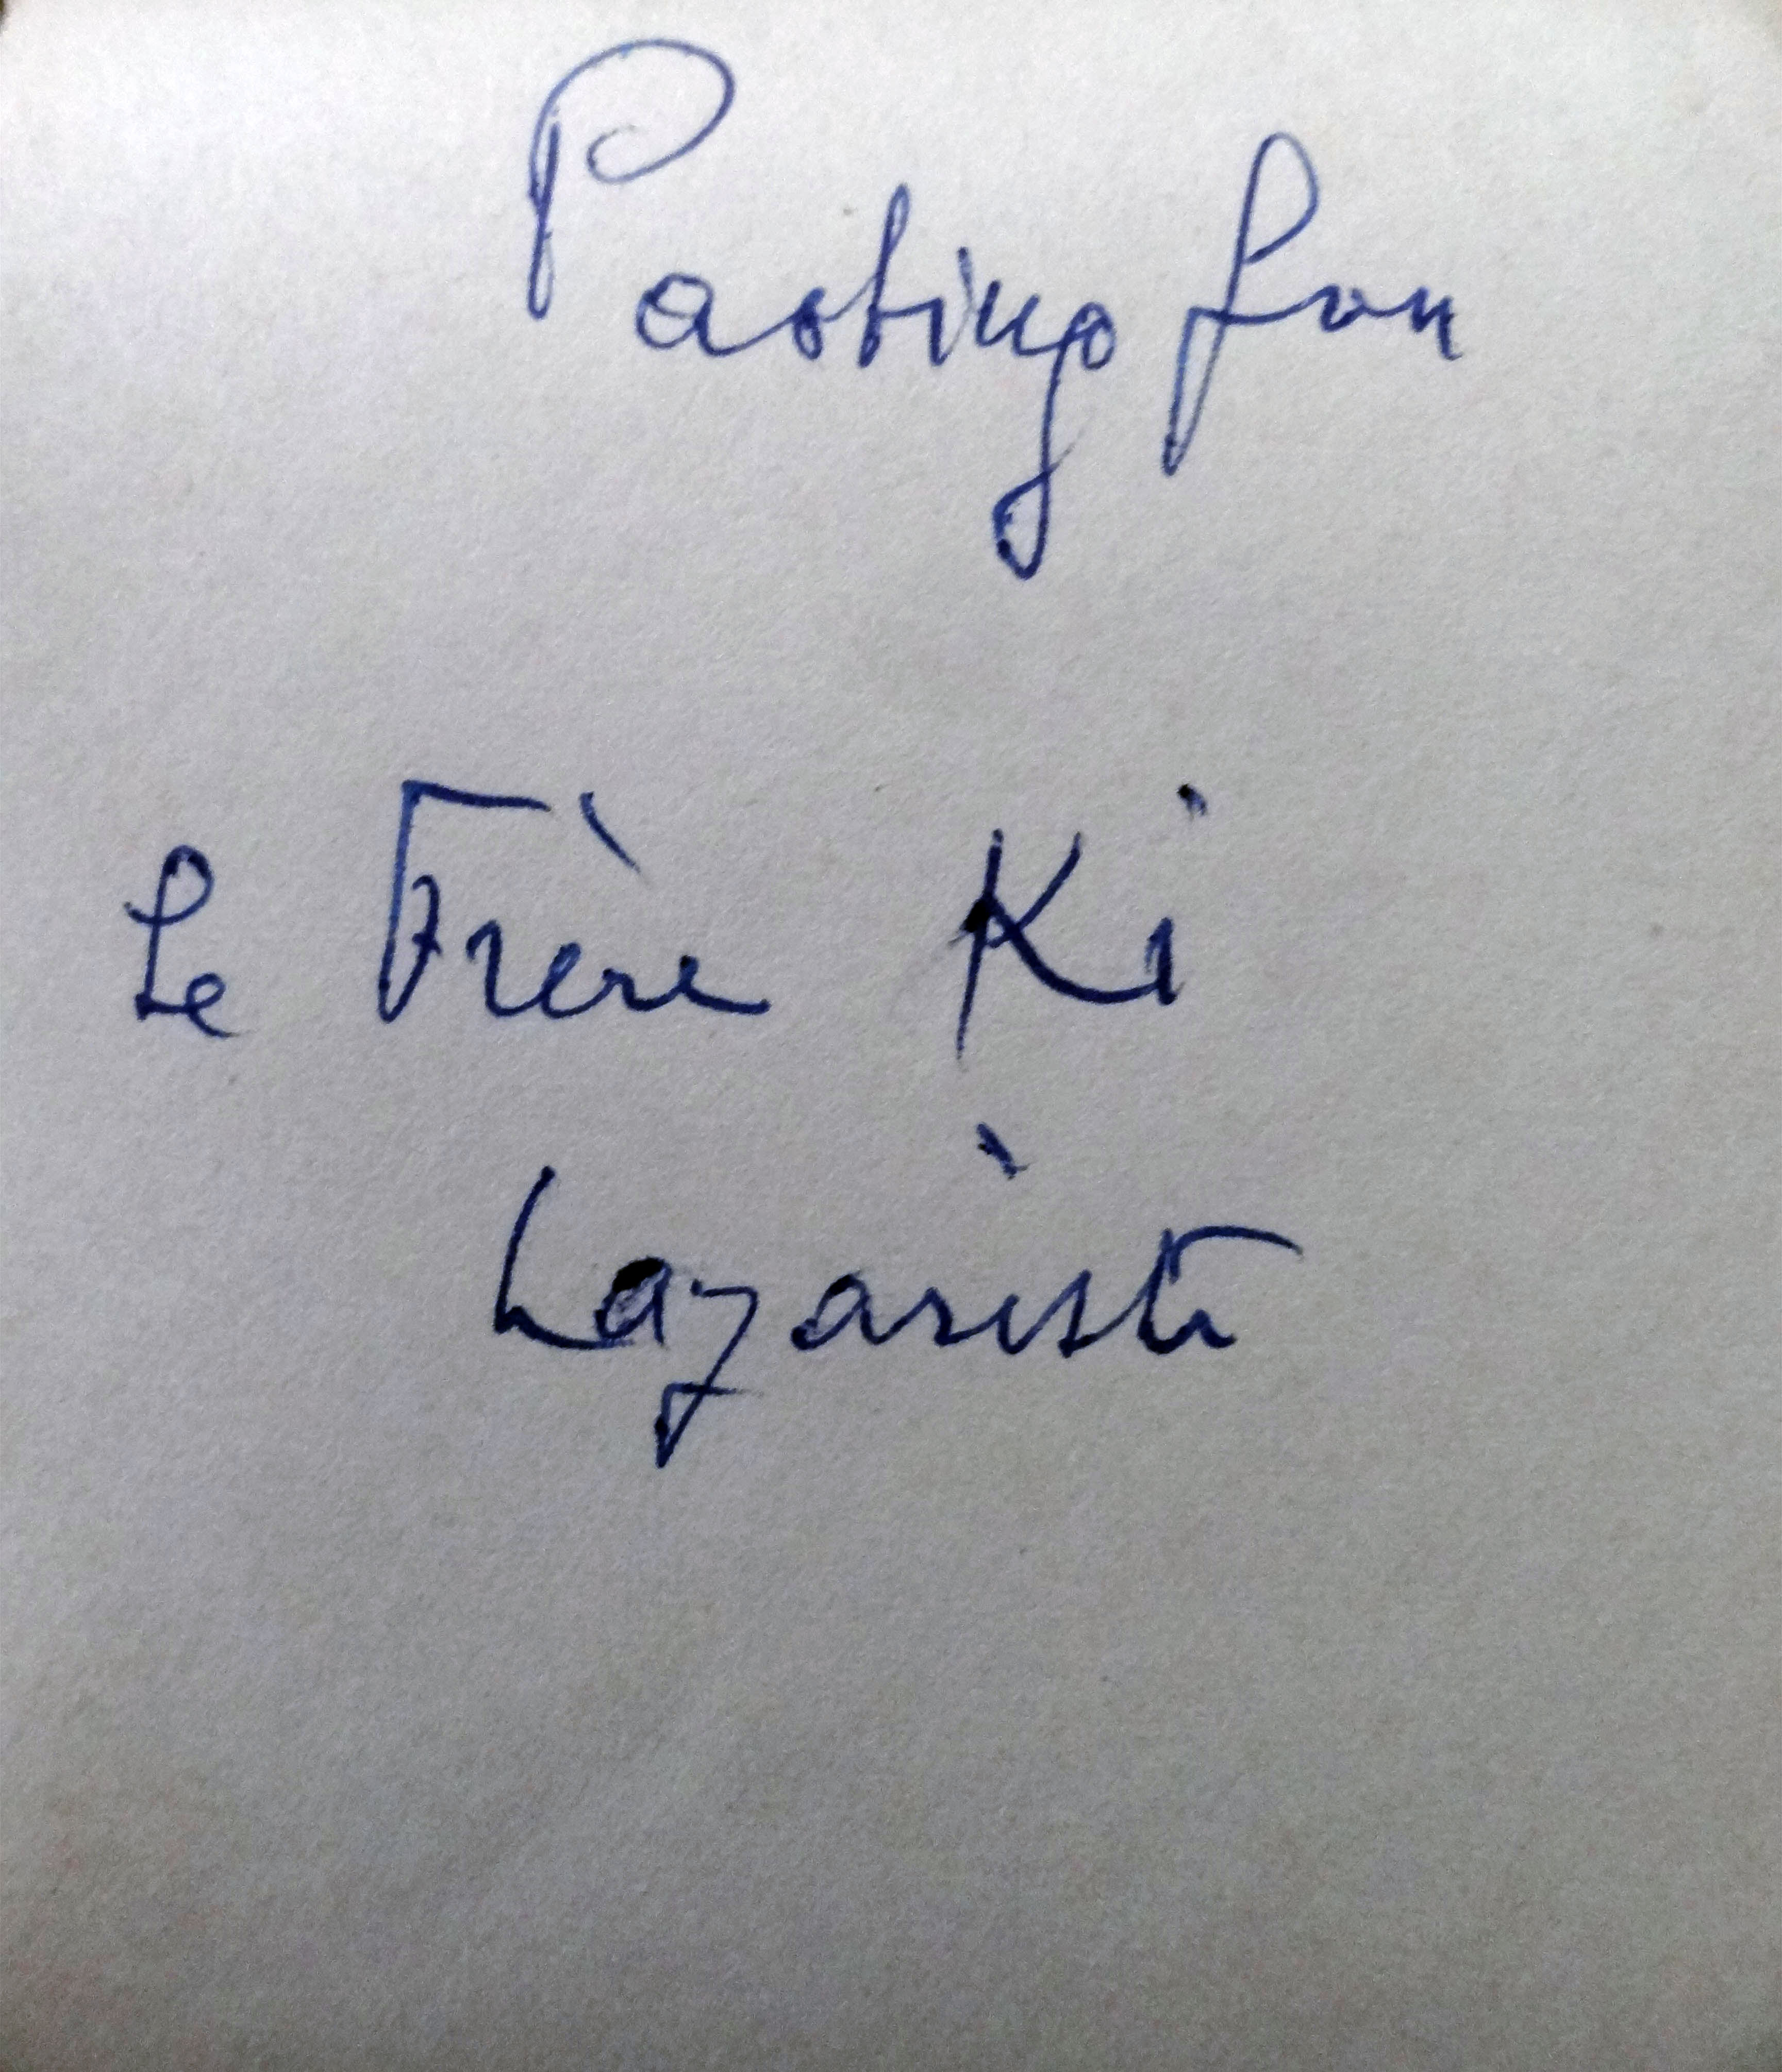 Paotingfou
Le Frère Ki
Lazariste